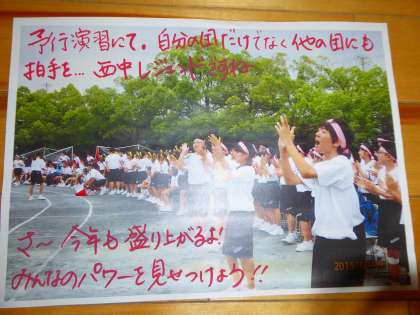 予行演習にて。自分の団だけでなく他の団にも
拍手を…西中レジェンドですね
さ〜今年も盛り上がるよ!
みんなのパワーを見せつけよう!!
2015